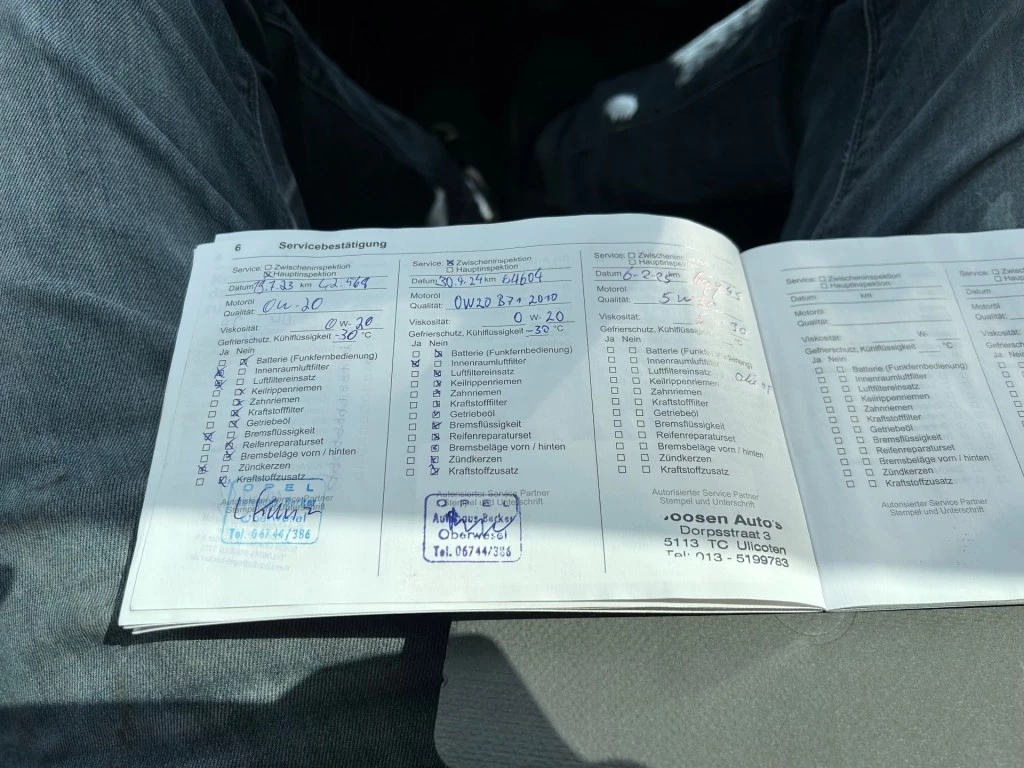 6 Servicebestätigung
Service: Zwischeninspektion
Hauptinspektion
Datum 7.23 km 42.469
Motoröl
Qualität: 0W-20
Viskosität: 0 W-20
Gefrierschutz, Kühlflüssigkeit -30 °C
Ja Nein
Batterie (Funkfernbedienung)
Innenraumluftfilter
Luftfiltereinsatz
Keilrippenriemen
Zahnriemen
Kraftstofffilter
Getriebeöl
Bremsflüssigkeit
Reifenreparaturset
Bremsbeläge vorn / hinten
Zündkerzen
Kraftstoffzusatz
Autorisierter Service Partner
Stempel und Unterschrift
OPEL
Oberwesel
Tel. 06744/386
Service: Zwischeninspektion
Hauptinspektion
Datum 30.9.24 km 64604
Motoröl
Qualität: 0W20 B71 2010
Viskosität: 0 W-20
Gefrierschutz, Kühlflüssigkeit -30 °C
Ja Nein
Batterie (Funkfernbedienung)
Innenraumluftfilter
Luftfiltereinsatz
Keilrippenriemen
Zahnriemen
Kraftstofffilter
Getriebeöl
Bremsflüssigkeit
Reifenreparaturset
Bremsbeläge vorn / hinten
Zündkerzen
Kraftstoffzusatz
Autorisierter Service Partner
Stempel und Unterschrift
OPEL
Autohaus Becker
Oberwesel
Tel. 06744/386
Service: Zwischeninspektion
Hauptinspektion
Datum 6-2-25 km
Motoröl
Qualität: 5W
Viskosität: 30
Gefrierschutz, Kühlflüssigkeit °C
Ja Nein
Batterie (Funkfernbedienung)
Innenraumluftfilter
Luftfiltereinsatz
Keilrippenriemen
Zahnriemen
Kraftstofffilter
Getriebeöl
Bremsflüssigkeit
Reifenreparaturset
Bremsbeläge vorn / hinten
Zündkerzen
Kraftstoffzusatz
Autorisierter Service Partner
Stempel und Unterschrift
Joosen Auto's
Dorpsstraat 3
5113 TC Ulicoten
Tel: 013 - 5199783
Service: Zwischeninspektion
Hauptinspektion
Datum km
Motoröl
Qualität:
Viskosität: W-
Gefrierschutz, Kühlflüssigkeit °C
Ja Nein
Batterie (Funkfernbedienung)
Innenraumluftfilter
Luftfiltereinsatz
Keilrippenriemen
Zahnriemen
Kraftstofffilter
Getriebeöl
Bremsflüssigkeit
Reifenreparaturset
Bremsbeläge vorn / hinten
Zündkerzen
Kraftstoffzusatz
Autorisierter Service Partner
Stempel und Unterschrift